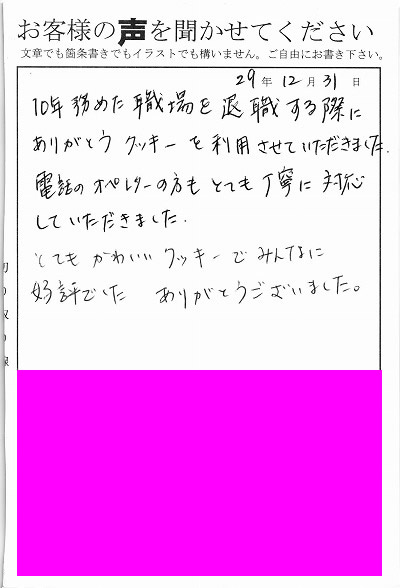 お客様の声を聞かせてください
文章でも箇条書きでもイラストでも構いません。ご自由にお書き下さい。
29年12月31日
10年務めた職場を退職する際に
ありがとうクッキーを利用させていただきました.
電話のオペレターの方もとても丁寧に対応
していただきました.
とてもかわいいクッキーでみんなに
好評でした ありがとうございました。